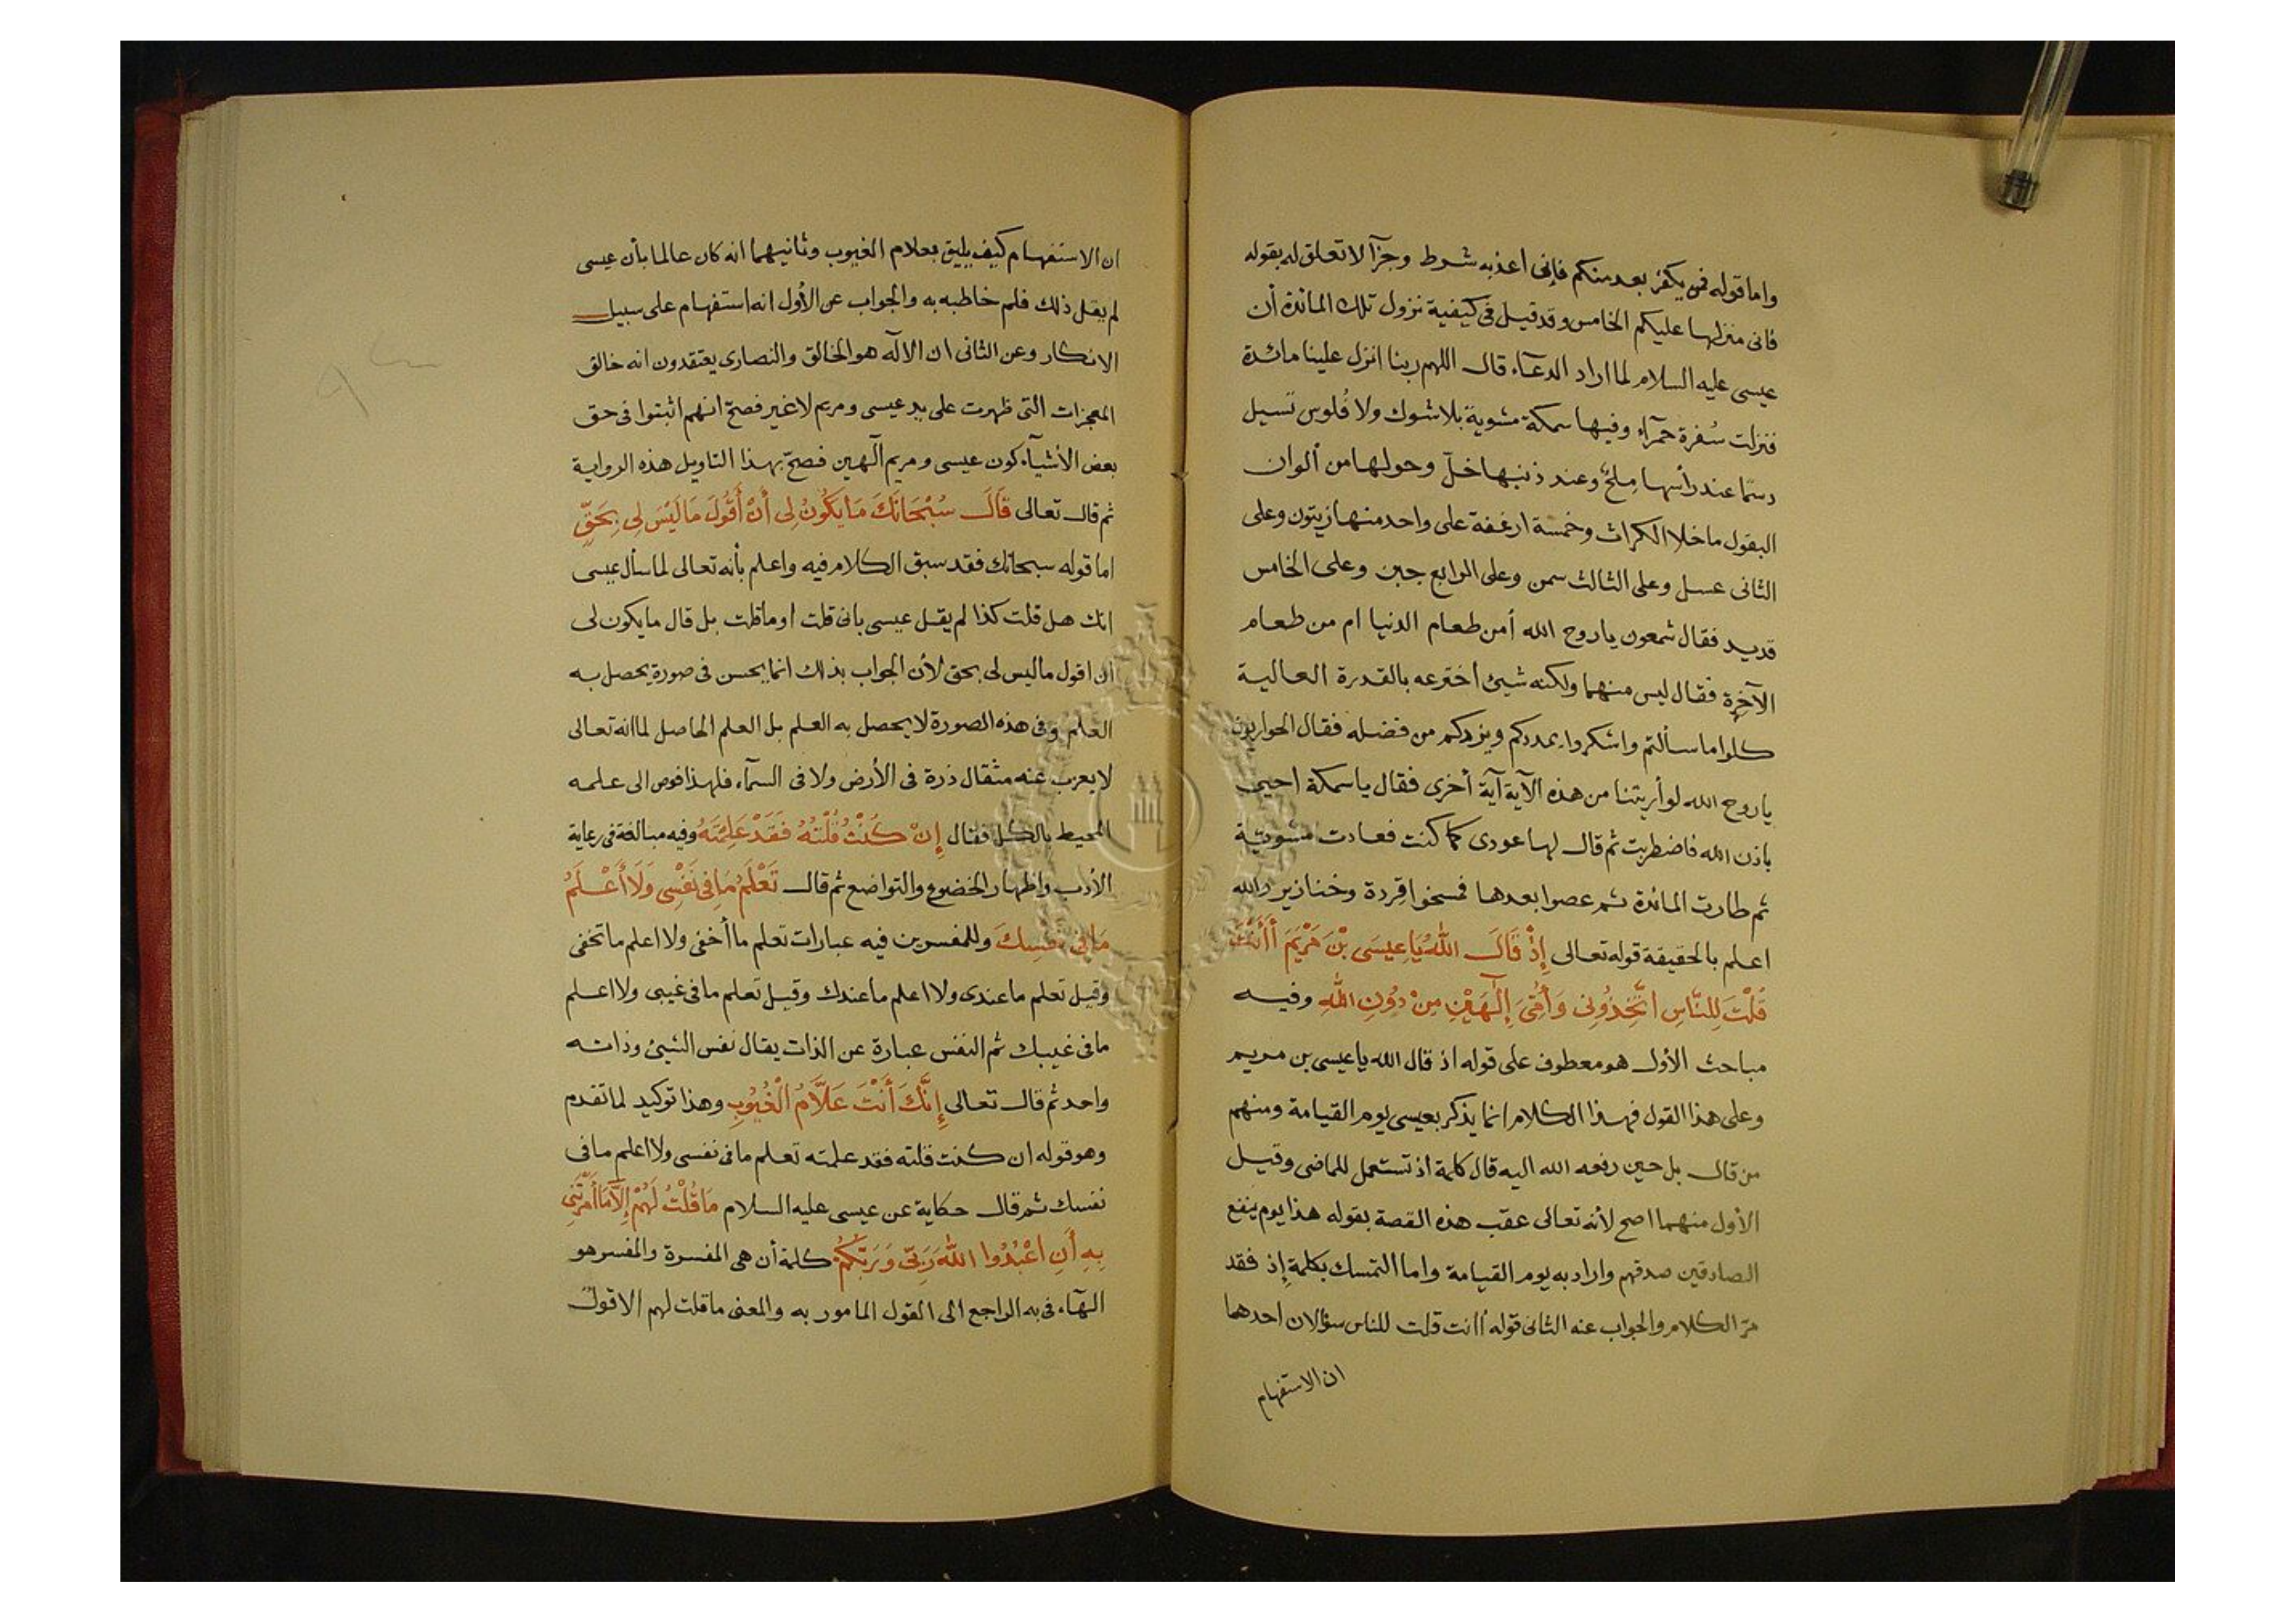 واما قوله فمن يكفر بعد منكم فإنى اعذبه شرط وجزآ لا تعلق له بقوله
فانى منزلها عليكم الخامس وقد قيل فى كيفية نزول تلك المائدة أن
عيسى عليه السلام لما اراد الدعآء قال اللهم ربنا انزل علينا مائدة
فنزلت سُفرة حمرآء وفيها سمكة مشوية بلا شوك ولا فُلوس تسيل
دسمًا عند رأسها مِلحٌ وعند ذنبها خلّ وحولها من ألوان
البقول ما خلا الكراث وخمسة ارغفة على واحد منها زيتون وعلى
الثانى عسل وعلى الثالث سمن وعلى الرابع جبن وعلى الخامس
قديد فقال شمعون ياروح الله أمن طعام الدنيا ام من طعام
الآخرة فقال ليس منهما ولكنه شيئ اخترعه بالقدرة العالية
كلوا ما سألتم واشكروا يمددكم ويزدكم من فضله فقال الحواريون
ياروح الله لو أريتنا من هذه الآية آية أخرى فقال ياسمكة احيى
باذن الله فاضطربت ثم قال لها عودى كما كنت فعادت مشويّة
ثم طارت المائدة ثم عصوا بعدها فمسخوا قِردة وخنازير والله
اعلم بالحقيقة قوله تعالى إِذْ قَالَ اللهُ يَا عِيسَى بْنَ مَرْيَمَ أَأَنْتَ
قُلْتَ لِلنَّاسِ اتَّخِذُونِى وَأُمِّىَ إِلَٓهَيْنِ مِنْ دُونِ اللهِ وفيه
مباحث الأول هو معطوف على قوله اذ قال الله يا عيسى بن مريم
وعلى هذا القول فهذا الكلام انما يذكر بعيسى يوم القيامة ومنهم
من قال بل حين رفعه الله اليه قال كلمة اذ تستعمل للماضى وقيل
الأول منهما اصح لأنه تعالى عقب هذه القصة بقوله هذا يوم ينفع
الصادقين صدقهم واراد به يوم القيامة واما التمسك بكلمة إذ فقد
مرّ الكلام والجواب عنه الثانى قوله أأنت قلت للناس سؤالان احدهما
ان الاستفهام
ان الاستفهام كيف يليق بعلام الغيوب وثانيهما انه كان عالما بأن عيسى
لم يقل ذلك فلم خاطبه به والجواب عن الأول انه استفهام على سبيل
الانكار وعن الثانى ان الآله هو الخالق والنصارى يعتقدون انه خالق
المعجزات التى ظهرت على يد عيسى ومريم لا غير فصحّ انهم اثبتوا فى حق
بعض الأشيآء كون عيسى ومريم آلهين فصحّ بهذا التاويل هذه الرواية
ثم قال تعالى قَالَ سُبْحَانَكَ مَا يَكُونُ لِى أَنْ أَقُولَ مَا لَيْسَ لِى بِحَقٍّ
اما قوله سبحانك فقد سبق الكلام فيه واعلم بأنه تعالى لما سأل عيسى
انك هل قلت كذا لم يقل عيسى بانى قلت او ما قلت بل قال ما يكون لى
ان اقول ما ليس لى بحق لأن الجواب بذلك انما يحسن فى صورة يحصل به
العلم وفى هذه الصورة لا يحصل به العلم بل العلم الحاصل لما انه تعالى
لا يعزب عنه مثقال ذرة فى الأرض ولا فى السمآء فلهذا فوض الى علمه
المحيط بالكل فقال إِنْ كُنْتُ قُلْتُهُ فَقَدْ عَلِمْتَهُ وفيه مبالغة فى رعاية
الأدب واظهار الخضوع والتواضع ثم قال تَعْلَمُ مَا فِى نَفْسِى وَلَا أَعْلَمُ
مَا فِى نَفْسِكَ وللمفسرين فيه عبارات تعلم ما أخفى ولا اعلم ما تخفى
وقيل تعلم ما عندى ولا اعلم ما عندك وقيل تعلم ما فى غيبى ولا اعلم
ما فى غيبك ثم النفس عبارة عن الذات يقال نفس الشيئ وذاته
واحد ثم قال تعالى إِنَّكَ أَنْتَ عَلَّامُ الْغُيُوبِ وهذا توكيد لما تقدم
وهو قوله ان كنت قلته فقد علمته تعلم ما فى نفسى ولا اعلم ما فى
نفسك ثم قال حكاية عن عيسى عليه السلام مَا قُلْتُ لَهُمْ إِلَّا مَا أَمَرْتَنِى
بِهِ أَنِ اعْبُدُوا اللهَ رَبِّى وَرَبَّكُمْ كلمة أن هى المفسرة والمفسر هو
الهآء فى به الراجع الى القول المامور به والمعنى ما قلت لهم الا قولً